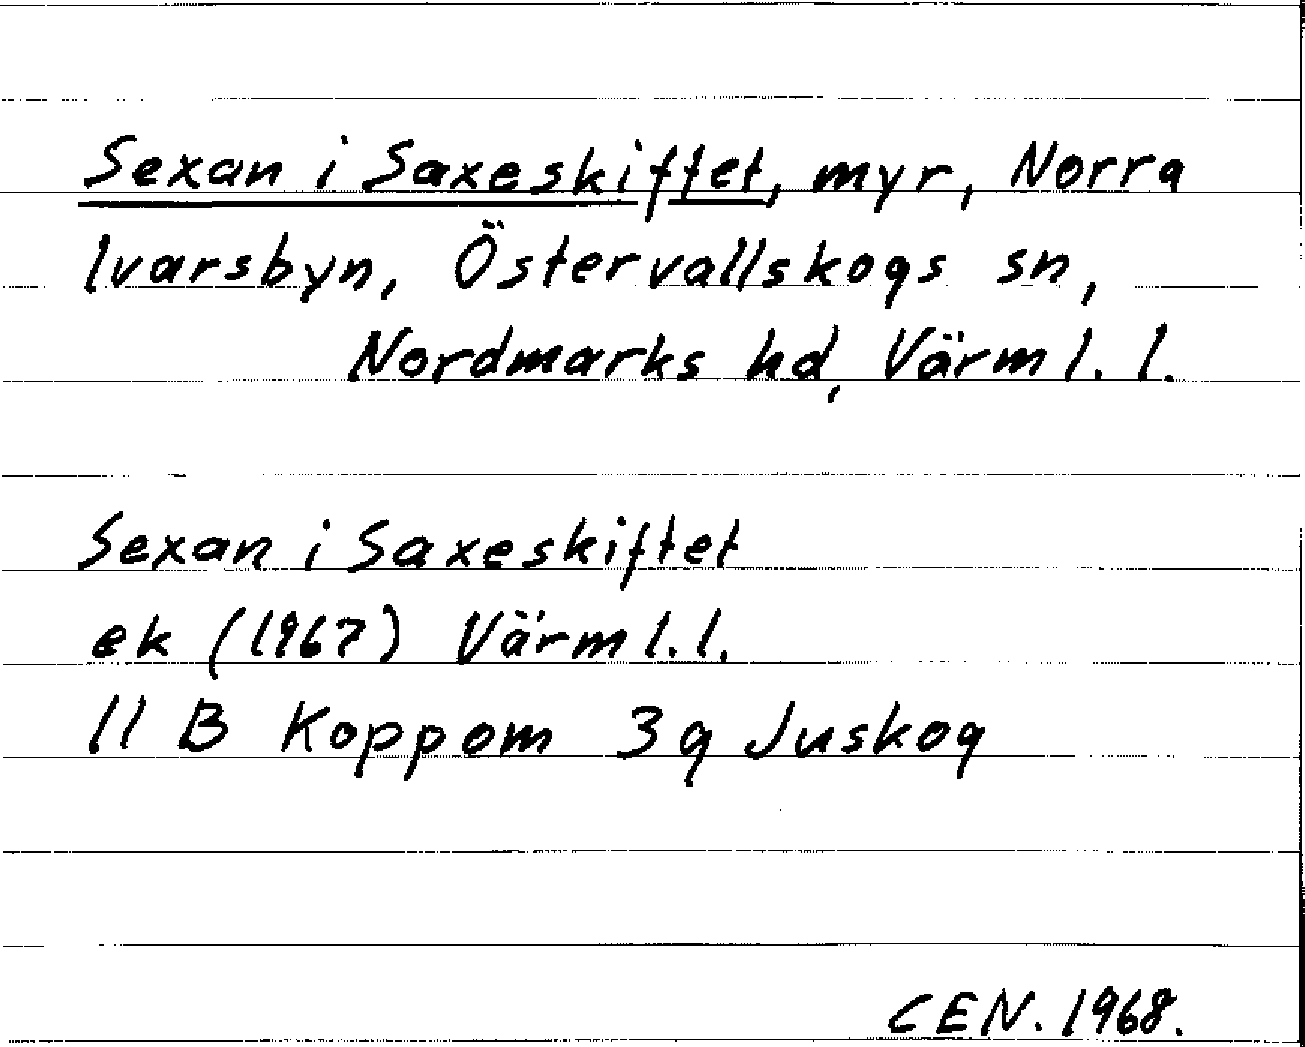 Sexan i Saxeskiftet, myr, Norra
Ivarsbyn, Östervallskogs sn,
Nordmarks hd, Värml. l.
Sexan i Saxeskiftet
ek (1967) Värml. l.
11 B Koppom 3g Juskog
CEN. 1968.